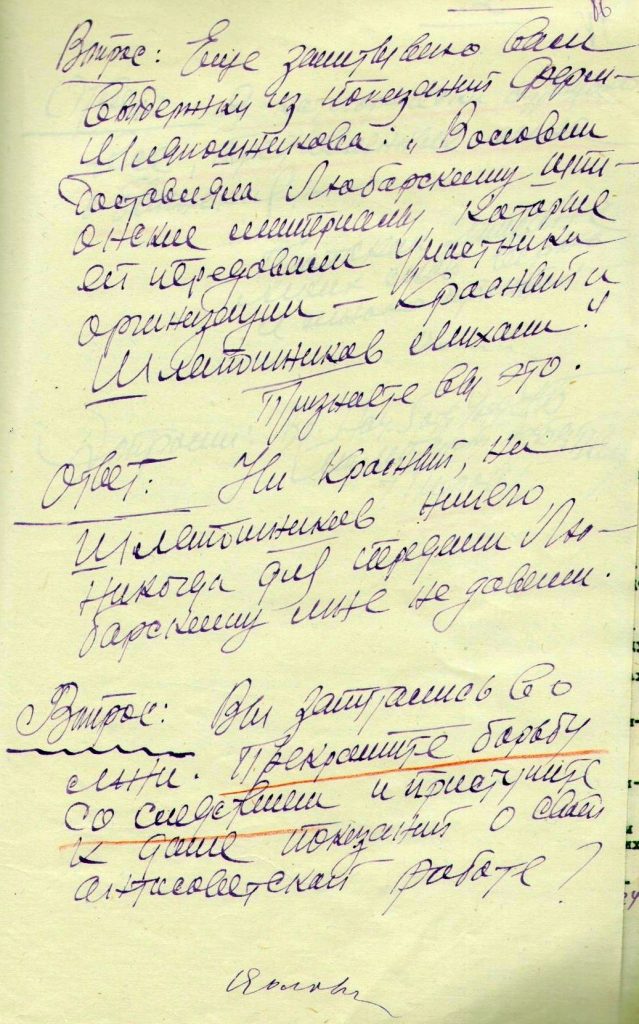 86
Вопрос: Еще зачитываю вам
выдержки из показаний
Шляпошникова: „Воловик
доставляла Любарскому шпи-
онские материалы которые
ей передовали участники
организации – Красный и
Шляпошников Михаил".
Признаете вы это.
Ответ: Ни Красный, ни
Шляпошников ничего,
никогда для передачи Лю-
барскому мне не довали.
Вопрос: Вы запутались во
лжи. Прекратите борьбу
со следствием и приступите
к даче показаний о своей
антисоветской работе?